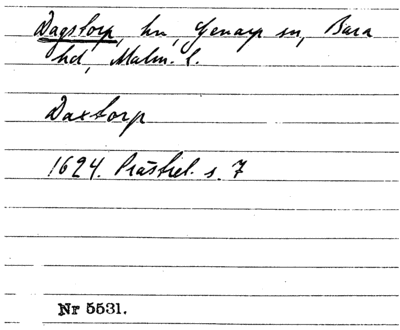 Dagstorp, hn, Genarp sn, Bara
hd, Malm. l.
Daxtorp
1624. Prästrel. s. 7
Nr 5531.